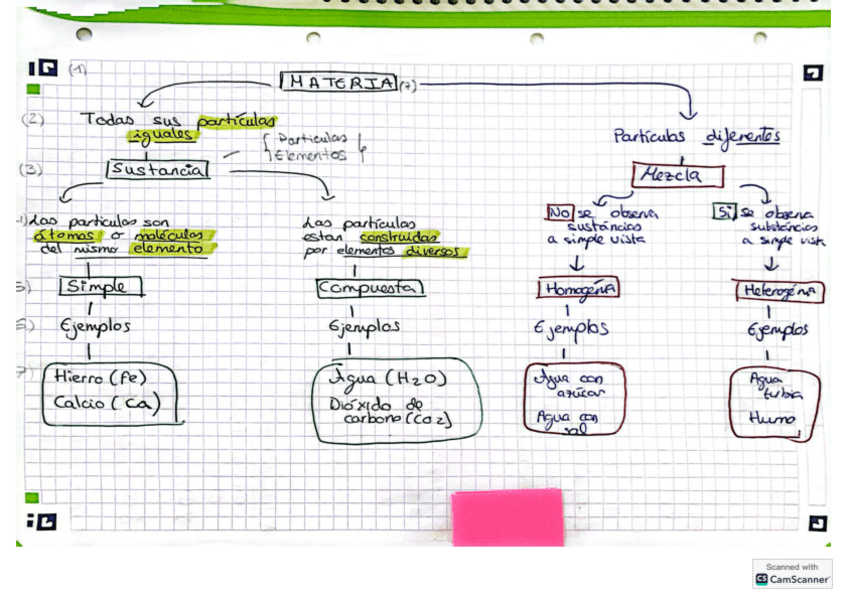 (1)
MATERIA (7)
(2)
Todas sus partículas
iguales
{ Particulas
Elementos }
Partículas diferentes
(3)
Sustancia
Mezcla
Las particulas son
átomos o moléculas
del mismo elemento
Las partículas
estan construidas
por elementos diversos
No se observa
sustáncias
a simple vista
Si se observa
substáncias
a simple vista
Simple
Compuesta
Homogénia
Heterogénia
Ejemplos
Ejemplos
Ejemplos
Ejemplos
Hierro (Fe)
Calcio (Ca)
Agua (H2O)
Dióxido de
carbono (CO2)
Agua con
azúcar
Agua con
sal
Agua
turbia
Humo
Scanned with
CS CamScanner